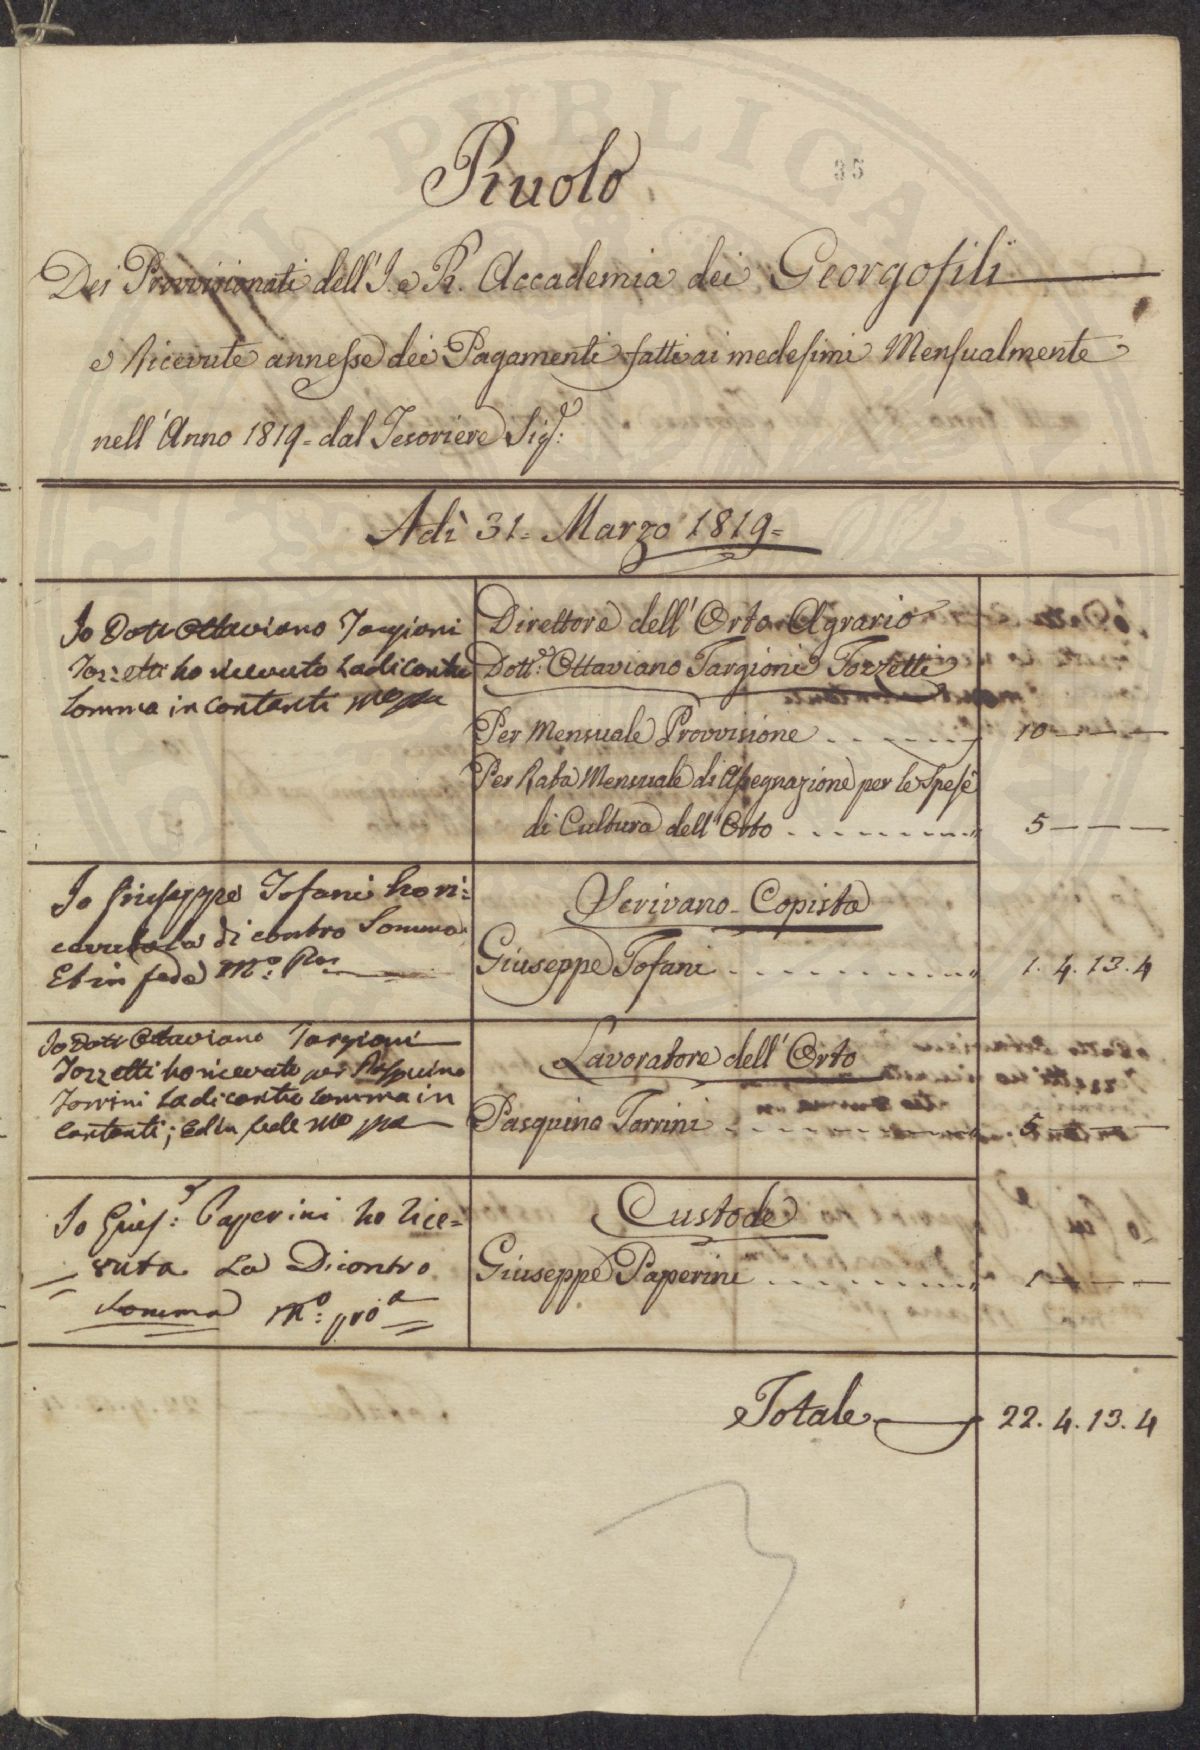 35
Ruolo
Dei Provvisionati dell'I. e R. Accademia dei Georgofili
e ricevute annesse dei Pagamenti fatti ai medesimi Mensualmente
nell'Anno 1819 = dal Tesoriere Sig.e:
Adì 31 = Marzo 1819 =
Io Dott Ottaviano Targioni
Tozzetti ho ricevuto la di contro
somma in contanti mo ppa
Direttore dell'Orto Agrario
Dott.e Ottaviano Targioni Tozzetti
Per Mensuale Provvisione . . . . . . . 10 — — —
Per Rata Mensuale di Assegnazione per le Spese
di Cultura dell'Orto . . . . . . . . . „ 5 — — —
Io Giuseppe Tofani ho ri:
cevuta la di contro Somma
Et in fede M.o: Pa
Scrivano = Copista
Giuseppe Tofani . . . . . . . . . . . „ 1. 4. 13. 4
Io Dott Ottaviano Targioni
Tozzetti ho ricevuto per Pasquino
Torrini la di contro somma in
contanti; ed in fede mo ppa
Lavoratore dell'Orto
Pasquino Torrini . . . . . . . . . . . 5 — — —
Io Gius.e: Paperini ho rice=
vuta La Dicontro
Somma M.o: pro.a
Custode
Giuseppe Paperini . . . . . . . . . . „ 1 — — —
Totale 22. 4. 13. 4